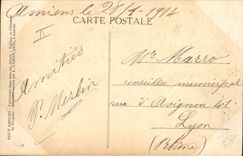 Amiens le 28/5 1914
CARTE POSTALE
II
Amitiés
P. Merlin
Mr Marro
conseiller municipal
rue d'Avignon
Lyon
(Rhône)